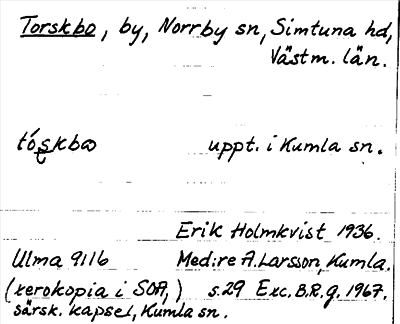 Torskbo, by, Norrby sn, Simtuna hd,
Västm. län.
tóskbω uppt. i Kumla sn.
Erik Holmkvist 1936.
Ulma 9116 Med: re A. Larsson, Kumla.
(xerokopia i SOA,) s.29 Exc. B.R-g. 1967.
särsk. kapsel, Kumla sn.